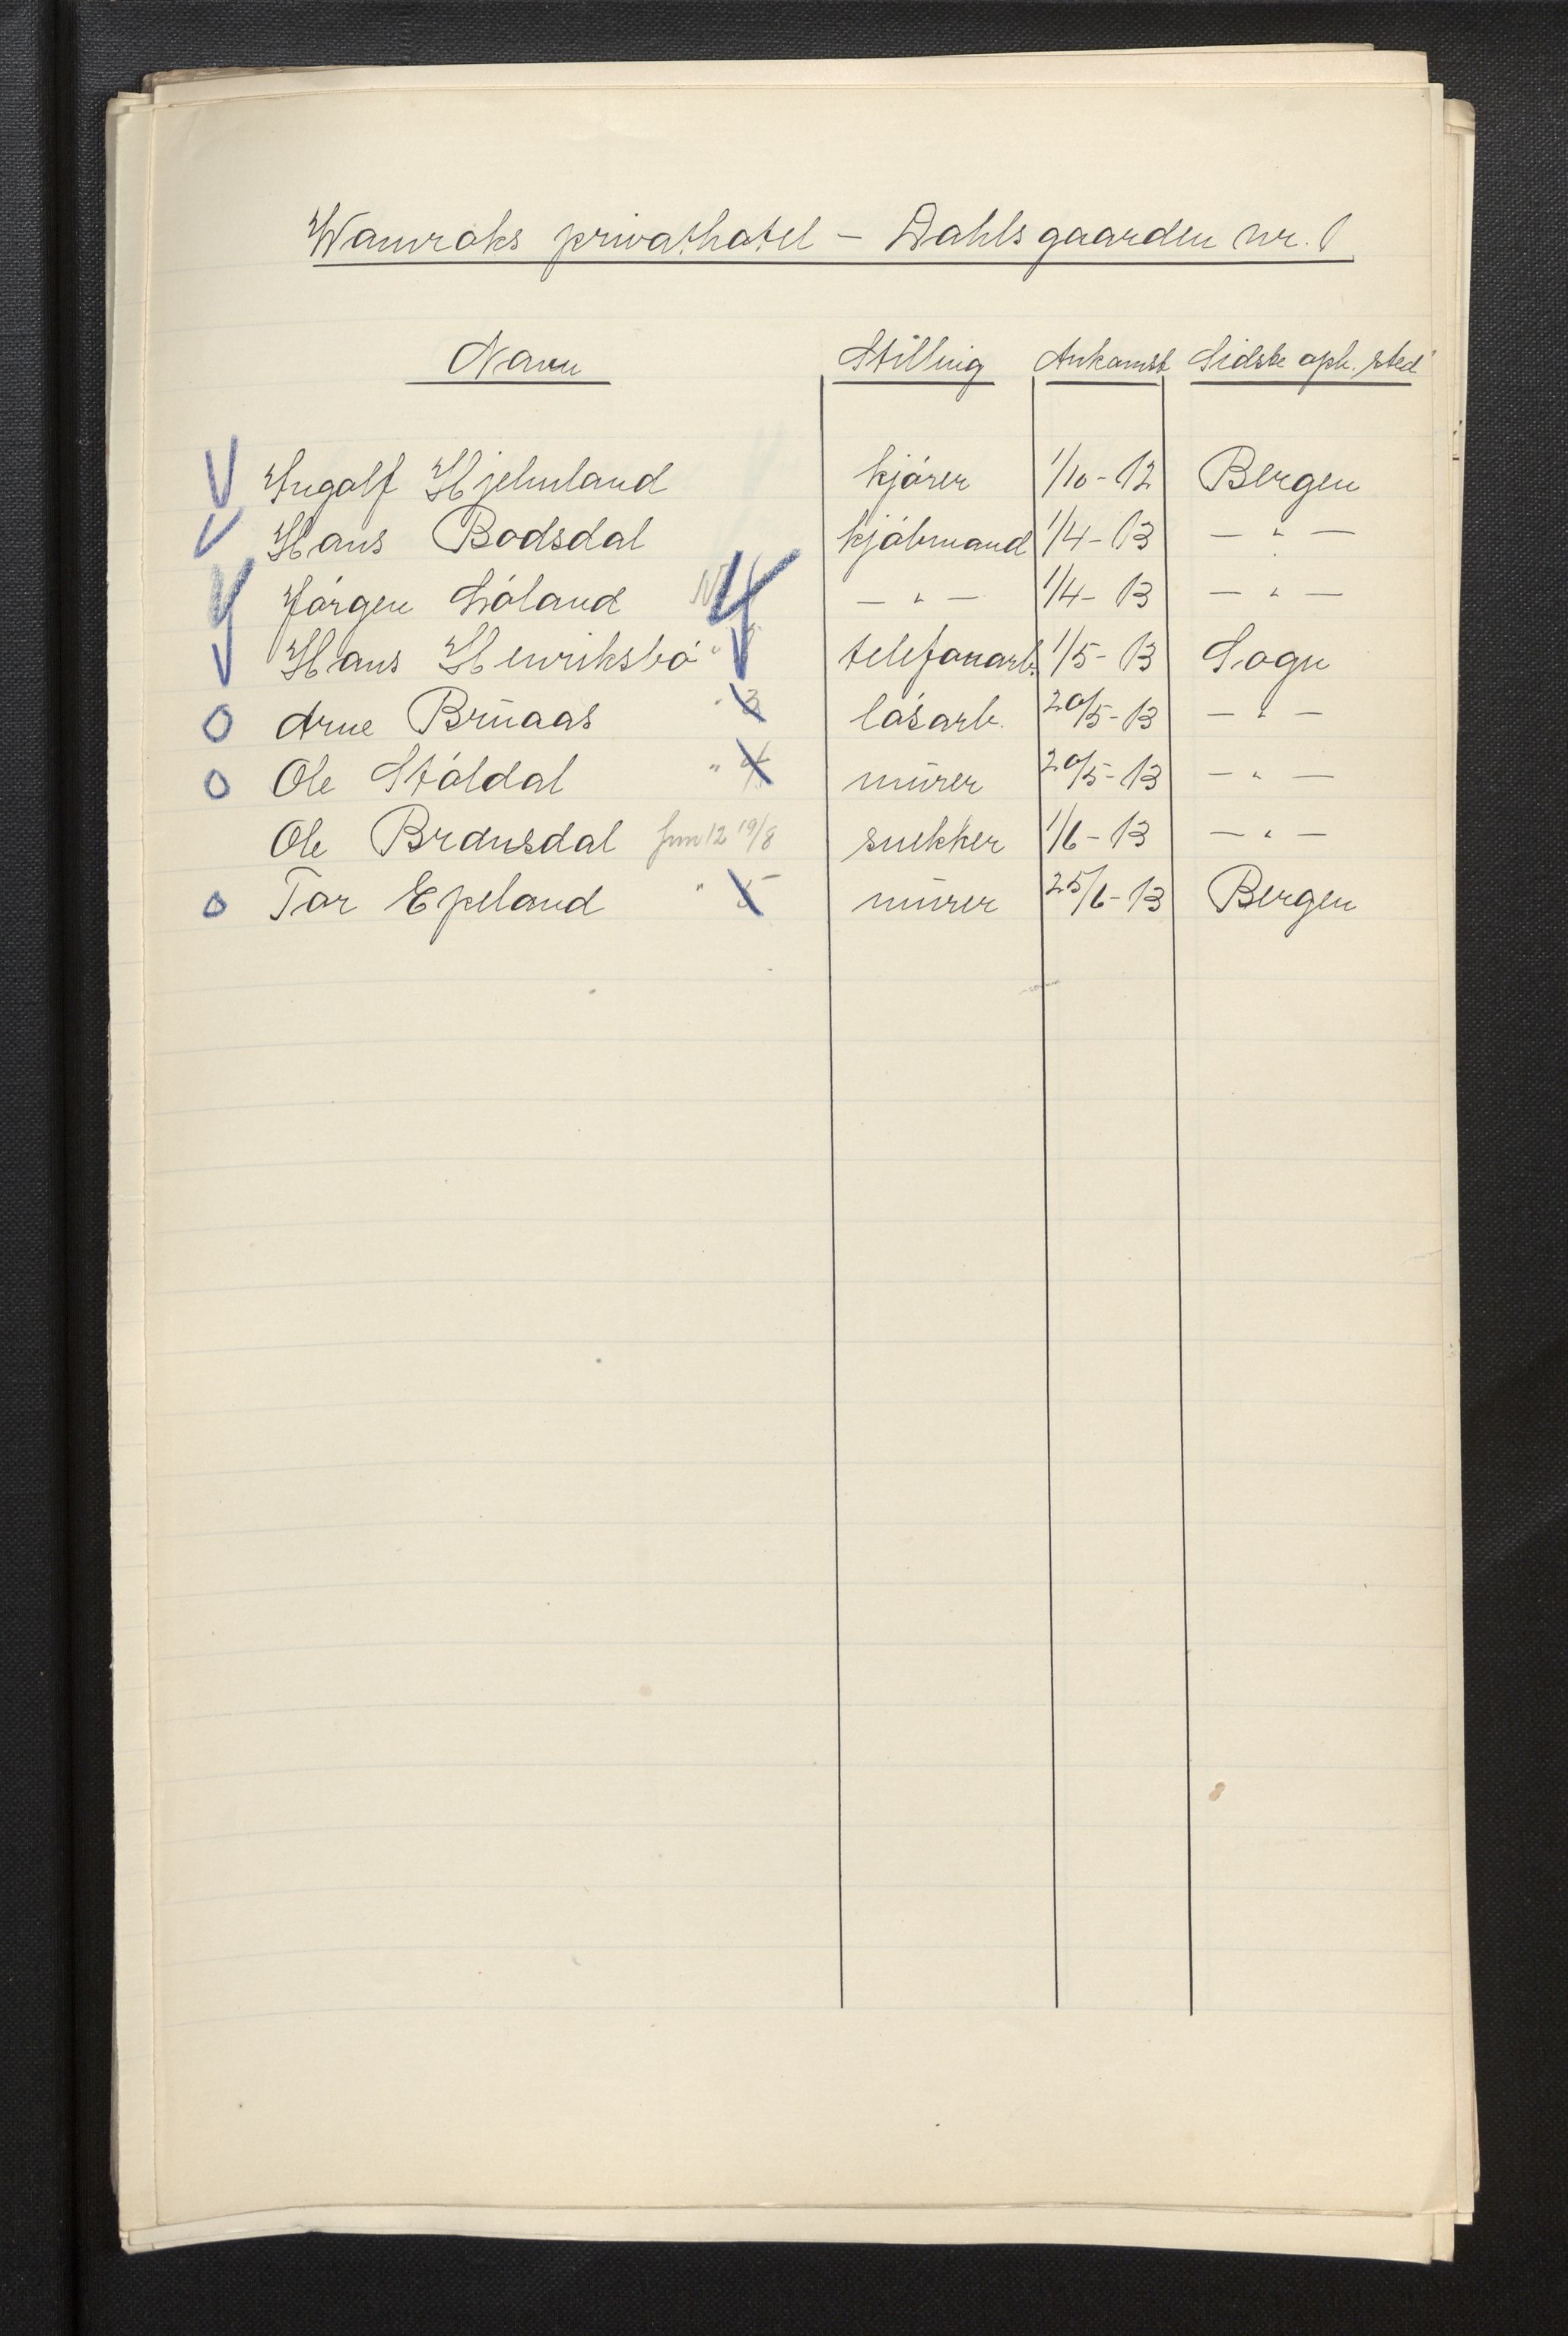 Wamraks privathotel - Dahlsgaarden nr. 1
Navn Stilling Ankomst Sidste oph. sted
Ingolf Hjelmland kjórer 1/10-12 Bergen
Hans Bodsdal kjóbmand 1/4-13 - " -
Jórgen Lóland N - " - 1/4-13 - " -
Hans Henriksbó " telefonarb. 1/5-13 Sogn
Arne Brūaas " 3 lósarb. 20/5-13 - " -
Ole Stóldal " 4 mūrer 20/5-13 - " -
Ole Bransdal 12 19/8 snekker 1/6-13 - " -
Tor Epeland " 5 mūrer 25/6-13 Bergen